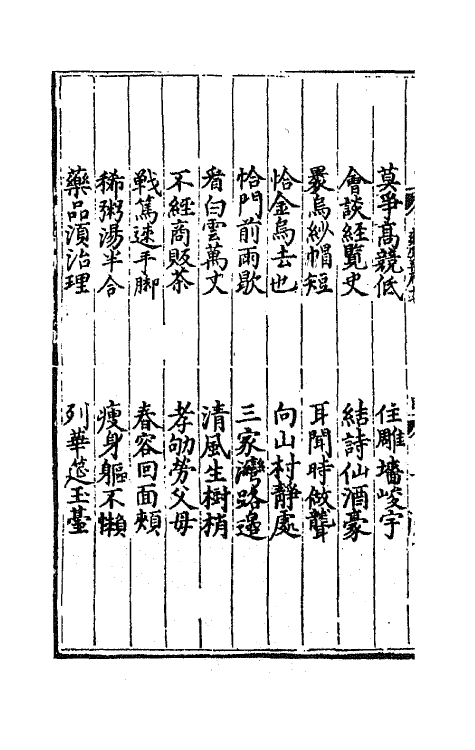 莫爭髙競低　住雕墻峻宇
會談經覽史　結詩仙酒豪
裹烏紗帽短　耳聞時做聾
恰金烏去也　向山村靜處
恰門前雨歇　三家灣路邉
看白雲萬丈　清風生樹梢
不經商販茶　孝劬勞父母
戰篤速手脚　春容回面頰
稀粥湯半合　瘦身軀不懶
藥品湏治理　列華筵玉臺